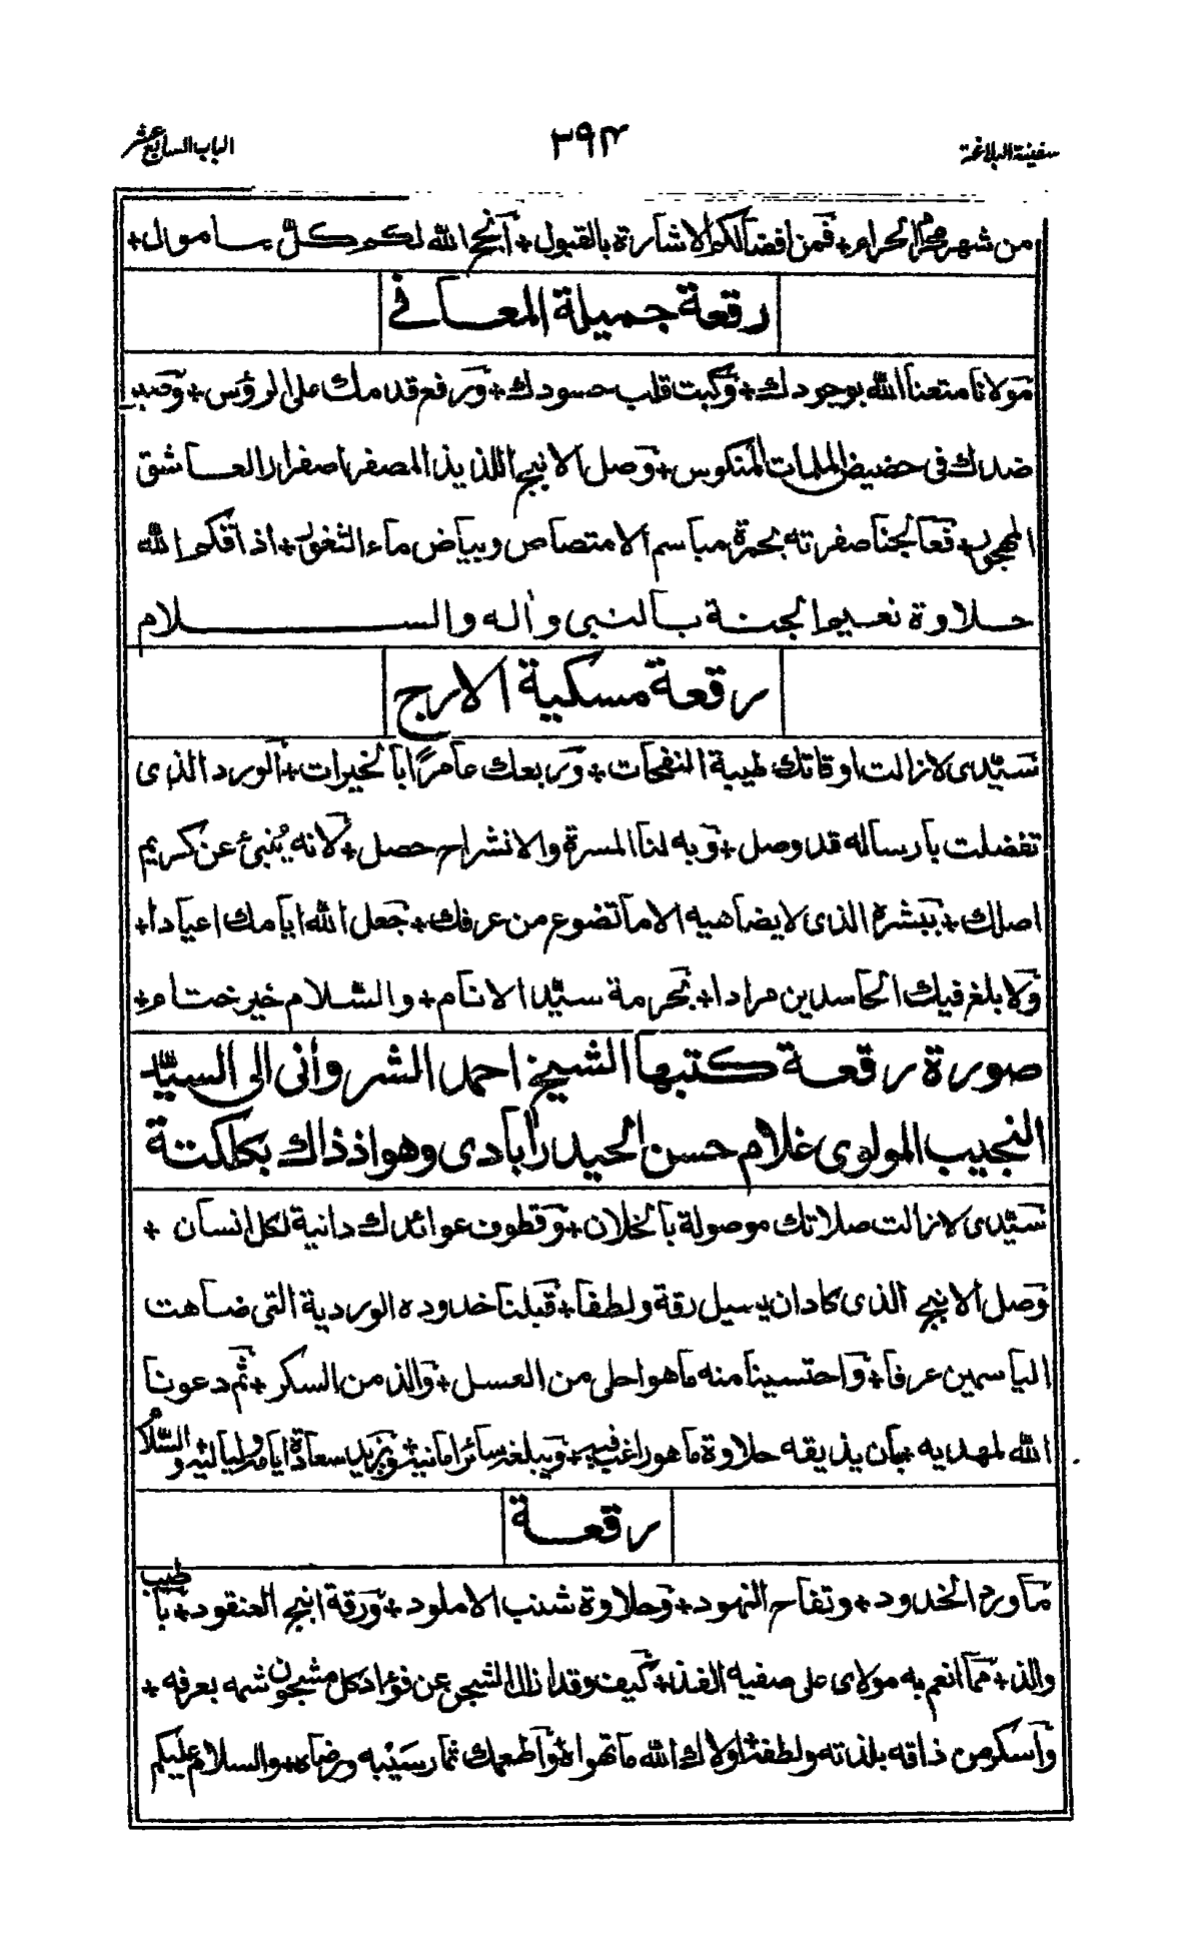 سفينة البلاغة ٣٩٤ الباب السابع عشر
من شهر محرم الحرام + فمن افضالكم الاشارة بالقبول + انجح الله لكم كل مامول +
رقعة جميلة المعانى
مولانا متعنا الله بوجودك + وكبت قلب حسودك + ورفع قدمك على الرؤس + وصير
ضدك فى حضيض الملمات المنكوس + وصل الانبج اللذيذ المصفر اصفرار العاشق
المهجور + فعالجنا صفرته بحمرة مباسم الامتصاص وبياض ماء الثغور + اذاقكم الله
حلاوة نعيم الجنة بالنبى واله والسلام
رقعة مسكية الارج
سيدى لازالت اوقاتك طيبة النفحات + وربعك عامرًا بالخيرات + الورد الذى
تفضلت بارساله قد وصل + وبه لنا المسرة والانشراح حصل + لانه يُنبئ عن كريم
اصلك + بنشره الذى لايضاهيه الا ما تضوع من عرفك + جعل الله ايامك اعيادا +
ولا بلغ فيك الحاسدين مرادا + بحرمة سيد الانام + والسلام خير ختام +
صورة رقعة كتبها الشيخ احمد الشروانى الى السيد
النجيب المولوى غلام حسن الحيدرابادى وهو اذ ذاك بكلكتة
سيدى لازالت صلاتك موصولة بالخلان + وقطوف عوائدك دانية لكل انسان +
وصل الانبج الذى كاد ان يسيل رقة ولطفا + فقبلنا خدوده الوردية التى ضاهت
الياسمين عرفا + واحتسينا منه ما هو احلى من العسل + والذ من السكر + ثم دعونا
الله لمهديه + بان يذيقه حلاوة ما هو راغب فيه + ويبلغه سائر امانيه + ويزيد سعادة ايامه ولياليه والسلام
رقعة
ما ورد الخدود + وتفاح النهود + وحلاوة شنب الاملود + ورقة ابنج العنقود + باطيب
والذ + مما انعم به مولاى على صفيه الفذ + كيف وقد ازال الشجن عن فؤاد كل مشجون شمه بعرفه +
واسكر من ذاقه بلذته ولطفه + اولاك الله ما تهواه + واطعمك ثمار سَيْبه ورضاه + والسلام عليكم